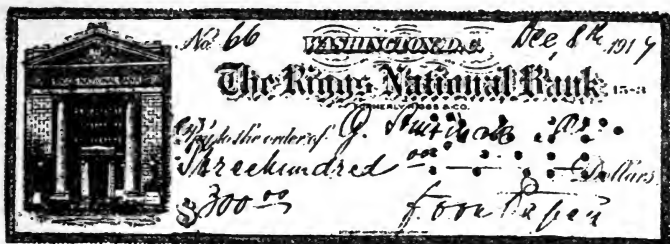 No. 66 WASHINGTON, D.C. Dec, 8th 1917
RIGGS NATIONAL BANK
The Riggs National Bank 15-3
FORMERLY RIGGS & CO.
Pay to the order of J.
Three hundred 00 Dollars
$300 00